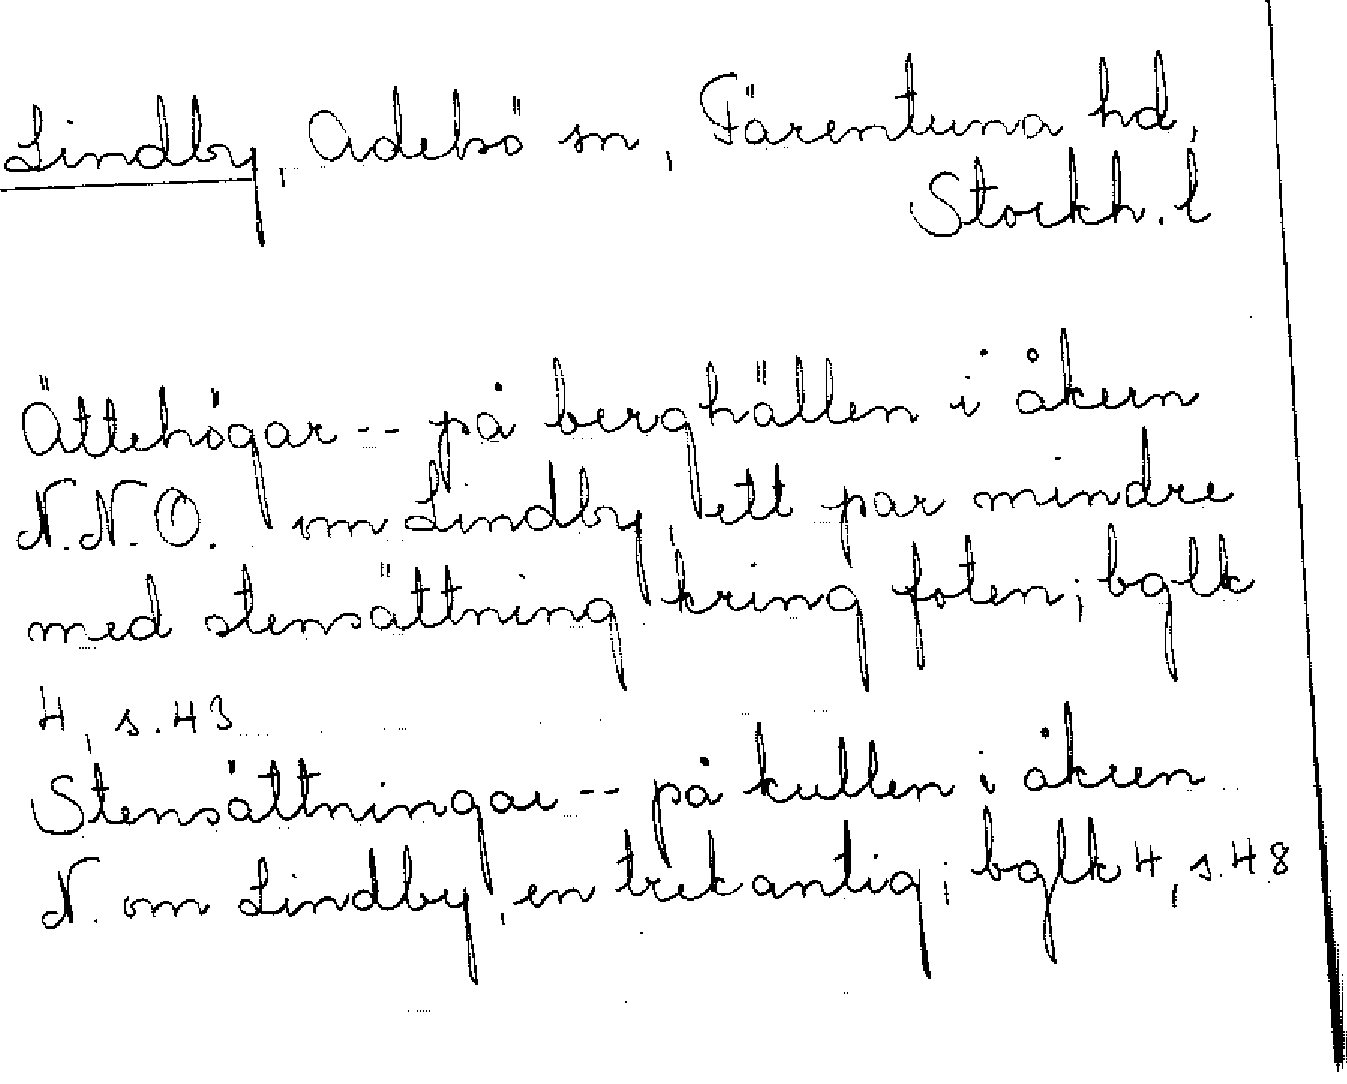 Lindby, Adelsö sn, Färentuna hd,
Stockh. l
Ättehögar -- på berghällen i åkern
N.N.O. om Lindby, ett par mindre
med stensättning kring foten; bglk
4, s. 43
Stensättningar -- på kullen i åkren
N. om Lindby, en trekantig; bglk 4, s. 48